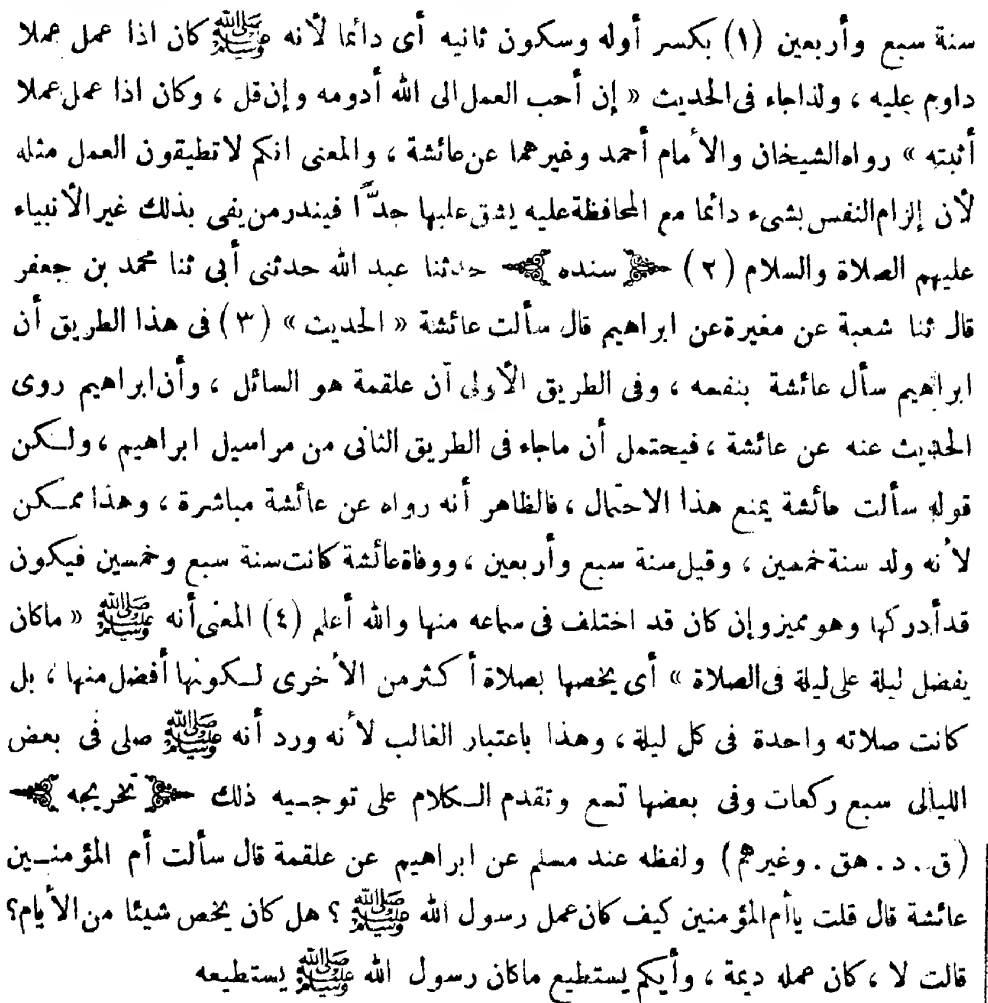 سنة سبع وأربعين (١) بكسر أوله وسكون ثانيه أى دائما لأنه ﷺ كان اذا عمل عملا
داوم عليه ، ولذا جاء فى الحديث « إن أحب العمل الى الله أدومه وإن قل ، وكان اذا عمل عملا
أثبته » رواه الشيخان والأمام أحمد وغيرهما عن عائشة ، والمعنى انكم لا تطيقون العمل مثله
لأن إلزام النفس بشىء دائما مع المحافظة عليه يشق عليها جدًّا فيندر من يفى بذلك غير الأنبياء
عليهم الصلاة والسلام (٢) سنده حدثنا عبد الله حدثنى أبى ثنا محمد بن جعفر
قال ثنا شعبة عن مغيرة عن ابراهيم قال سألت عائشة « الحديث » (٣) فى هذا الطريق أن
ابراهيم سأل عائشة بنفسه ، وفى الطريق الأولى أن علقمة هو السائل ، وأن ابراهيم روى
الحديث عنه عن عائشة ، فيحتمل أن ماجاء فى الطريق الثانى من مراسيل ابراهيم ، ولكن
قوله سألت عائشة يمنع هذا الاحتمال ، فالظاهر أنه رواه عن عائشة مباشرة ، وهذا ممكن
لأنه ولد سنة خمسين ، وقيل سنة سبع وأربعين ، ووفاة عائشة كانت سنة سبع وخمسين فيكون
قد أدركها وهو مميز وإن كان قد اختلف فى سماعه منها والله أعلم (٤) المعنى أنه ﷺ « ماكان
يفضل ليلة على ليلة فى الصلاة » أى يخصها بصلاة أكثر من الأخرى لكونها أفضل منها ، بل
كانت صلاته واحدة فى كل ليلة ، وهذا باعتبار الغالب لأنه ورد أنه ﷺ صلى فى بعض
الليالى سبع ركعات وفى بعضها تسع وتقدم الكلام على توجيه ذلك تخريجه
(ق . د . هق . وغيرهم) ولفظه عند مسلم عن ابراهيم عن علقمة قال سألت أم المؤمنين
عائشة قال قلت ياأم المؤمنين كيف كان عمل رسول الله ﷺ ؟ هل كان يخص شيئا من الأيام؟
قالت لا ، كان عمله ديمة ، وأيكم يستطيع ماكان رسول الله ﷺ يستطيعه